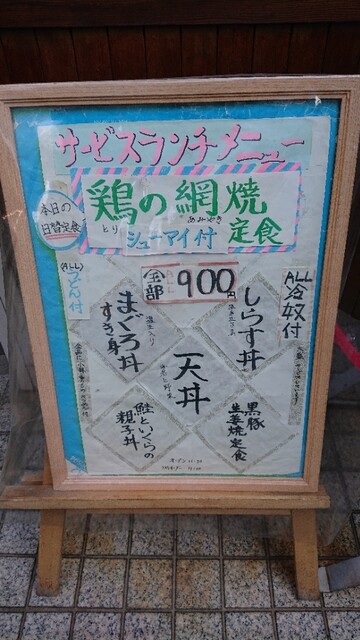 サービスランチメニュー
本日の
日替定食
鶏の網焼
とり
あみやき
シューマイ付
定食
(ALL)
うどん付
全部
ALL
900円
ALL
冷奴付
しらす丼
まぐろ
すき身丼
天丼
黒豚
生姜焼定食
鮭といくらの
親子丼